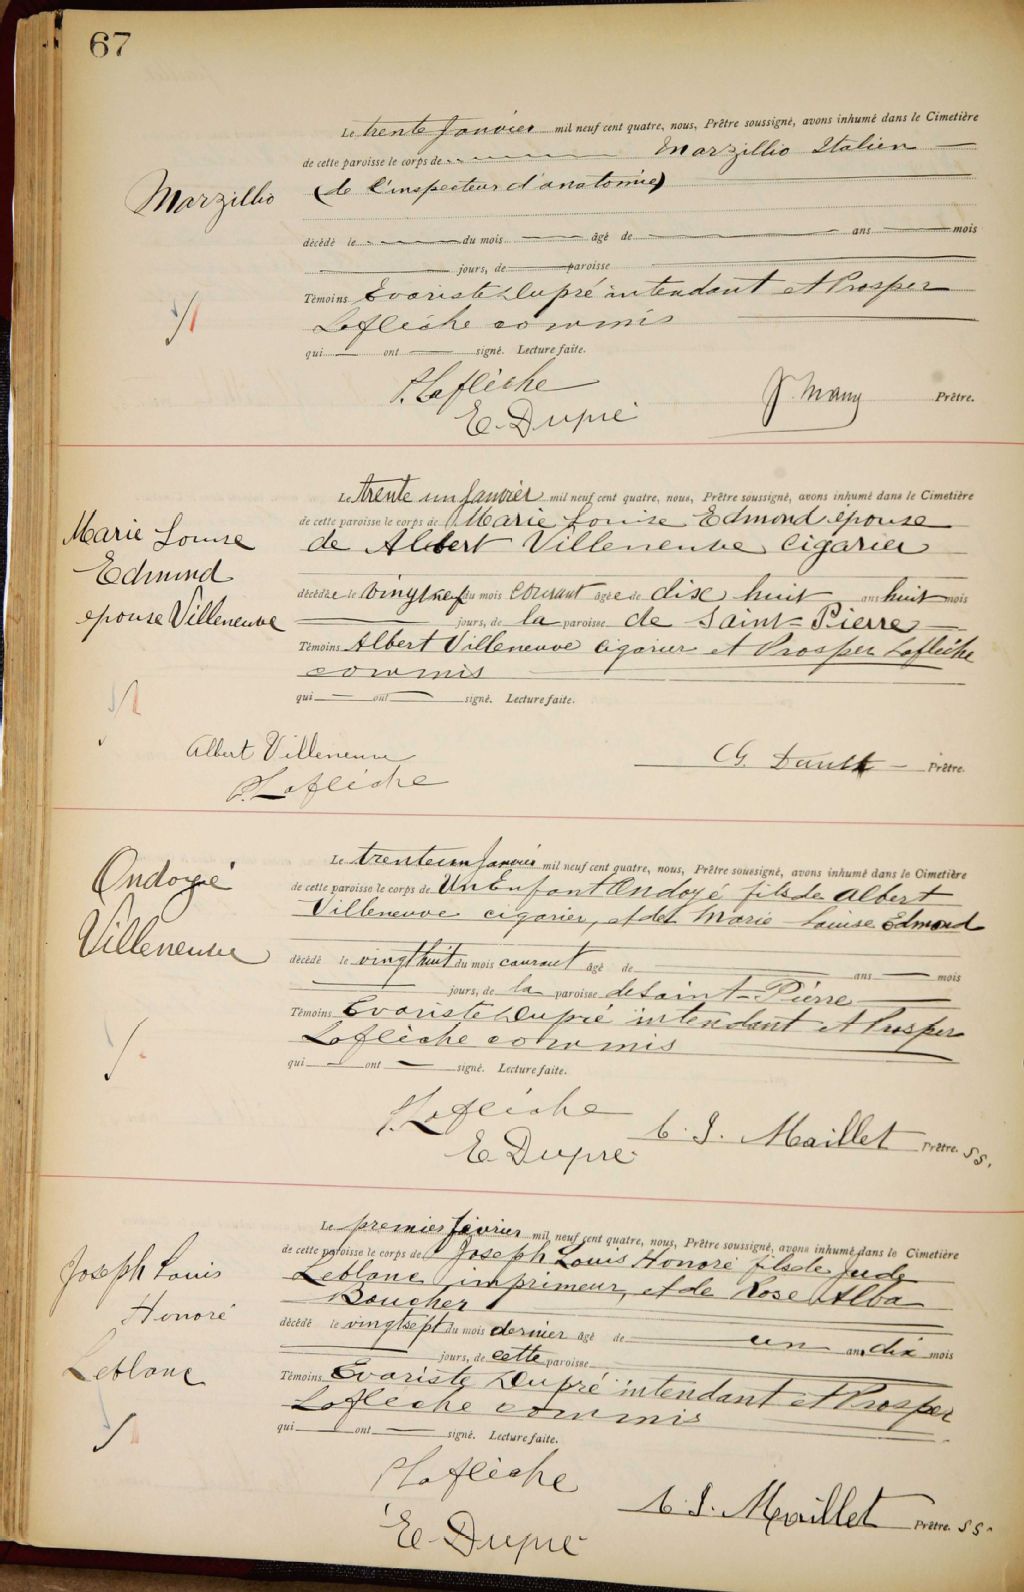 67
Le trente Janvier mil neuf cent quatre, nous, Prêtre soussigné, avons inhumé dans le Cimetière
de cette paroisse le corps de Marzillio Italien
Marzillio
(de l'inspecteur d'anatomie)
décédé le du mois âgé de ans mois
jours, de paroisse
Témoins Evariste Dupré intendant et Prosper
Laflèche commis
qui ont signé. Lecture faite.
P. Laflèche
E. Dupré
Prêtre.
Le trente un Janvier mil neuf cent quatre, nous, Prêtre soussigné, avons inhumé dans le Cimetière
de cette paroisse le corps de Marie Louise Edmond épouse
de Albert Villeneuve cigarier
Marie Louise
Edmond
épouse Villeneuve
décédée le vingt neuf du mois courant âgée de dix huit ans huit mois
jours, de la paroisse de Saint-Pierre
Témoins Albert Villeneuve cigarier et Prosper Laflèche
commis
qui ont signé. Lecture faite.
Albert Villeneuve
P. Laflèche
Prêtre.
Ondoyé
Villeneuve
Le trente un Janvier mil neuf cent quatre, nous, Prêtre soussigné, avons inhumé dans le Cimetière
de cette paroisse le corps de Un Enfant Ondoyé fils de Albert
Villeneuve cigarier, et de Marie Louise Edmond
décédé le vingt huit du mois courant âgé de ans mois
jours, de la paroisse de Saint-Pierre
Témoins Evariste Dupré intendant et Prosper
Laflèche commis
qui ont signé. Lecture faite.
P. Laflèche
E. Dupré
J. Maillet Prêtre. SS.
Le premier février mil neuf cent quatre, nous, Prêtre soussigné, avons inhumé dans le Cimetière
de cette paroisse le corps de Joseph Louis Honoré fils de Jude
Leblanc imprimeur, et de Rose Alba
Boucher
Joseph Louis
Honoré
Leblanc
décédé le vingt sept du mois dernier âgé de un an, dix mois
jours, de cette paroisse
Témoins Evariste Dupré intendant et Prosper
Laflèche commis
qui ont signé. Lecture faite.
P Laflèche
E. Dupré
J. Maillet Prêtre. SS.